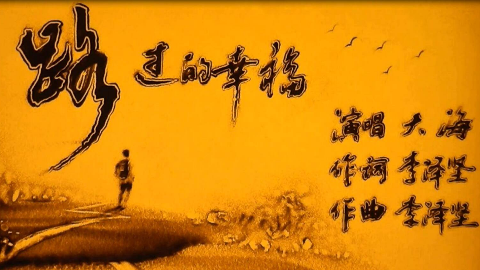 路过的幸福
演唱 大海
作词 李泽坚
作曲 李泽坚